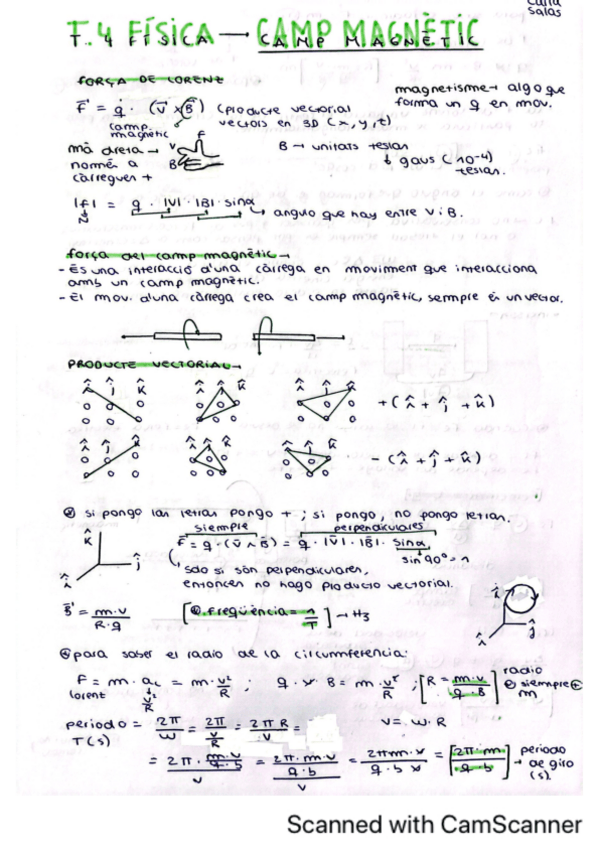 Carla
Salas
T.4 FÍSICA → CAMP MAGNÈTIC
FORÇA DE LORENZ
magnetisme → algo que
forma un q en mov.
F = q · (v x B) (producte vectorial
vectors en 3D (x, y, z)
camp
magnètic
mà dreta →
només a
càrregues +
V
F
B
B → unitats teslas
↓ gaus (10-4)
teslas.
|F| = q · |V| · |B| · sinα → angulo que hay entre V i B.
N
força del camp magnètic →
- És una interacció d'una càrrega en moviment que interacciona
amb un camp magnètic.
- El mov. d'una càrrega crea el camp magnètic, sempre és un vector.
PRODUCTE VECTORIAL →
î ĵ k̂ î ĵ k̂ î ĵ k̂ + (î + ĵ + k̂)
î ĵ k̂ î ĵ k̂ î ĵ k̂ - (î + ĵ + k̂)
si pongo las letras pongo + ; si pongo, no pongo letras.
siempre perpendiculares
F = q · (v ∧ B) = q · |V| · |B| · sinα
sin 90° = 1
k̂
ĵ
î
solo si son perpendiculares,
entonces no hago producto vectorial.
B = m·v / R·q [freqüència = 1/T] → Hz
para saber el radio de la circumferencia:
F = m · ac = m · v²/R ; q · v · B = m · v²/R ; [R = m·v / q·B] radio
siempre
m
lorent
v²/R
periodo = 2π/w = 2π / v/R = 2πR / v =
v = w · R
T(s)
= 2π · m·v/q·b / v = 2π·m·v / q·b / v = 2πm·v / q·b v = [2π·m / q·b] → periodo
de giro
(s).
Scanned with CamScanner